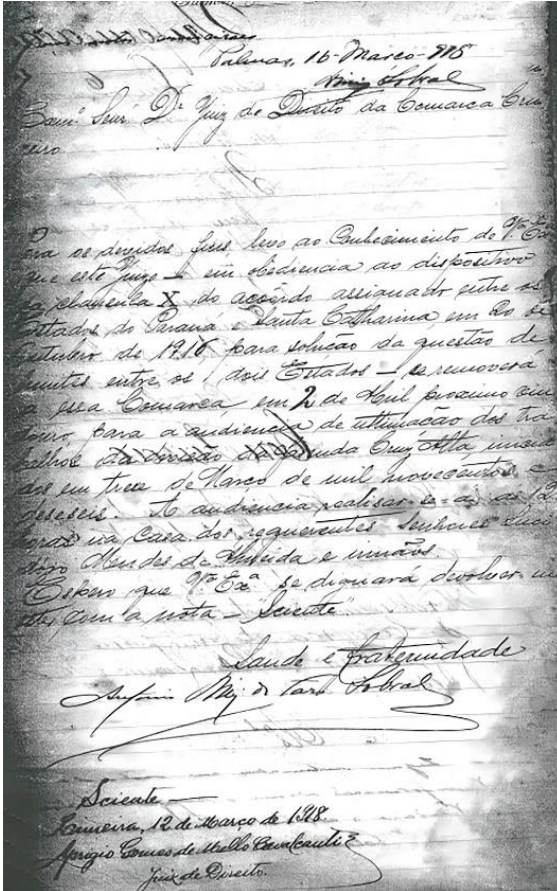 Palmas, 16-Março-918
Diniz Sobral
Exmº Senr Dr Juiz de Direito da Comarca Cru
zeiro
Para os devidos fins levo ao Conhecimento de Vª Exª
que este Juizo – em obediencia ao dispositivo
da clausula X do accôrdo assignado entre os
Estados do Paraná e Santa Catharina, em 20 de
Outubro de 1916 para solução da questão de
limites entre os dois Estados – se removerá
a essa Comarca, em 2 de Abril proximo vin
douro, para a audiencia de ultimação dos tra
balhos da divisão da fazenda Cruz Alta, inicia
dos em treze de Março de mil novecentos e
deseseis. A audiencia realisar-se-á as
horas na Casa dos requerentes Senhores
Mendes de Almeida e irmãos.
Espero que Vª Exª se dignará devolver-m
este, com a nota – Sciente"
Saude e fraternidade
Antonio de Sobral
Sciente –
12 de Março de 1918
Aprigio Gomes de Mello Cavalcanti
Juiz de Direito.